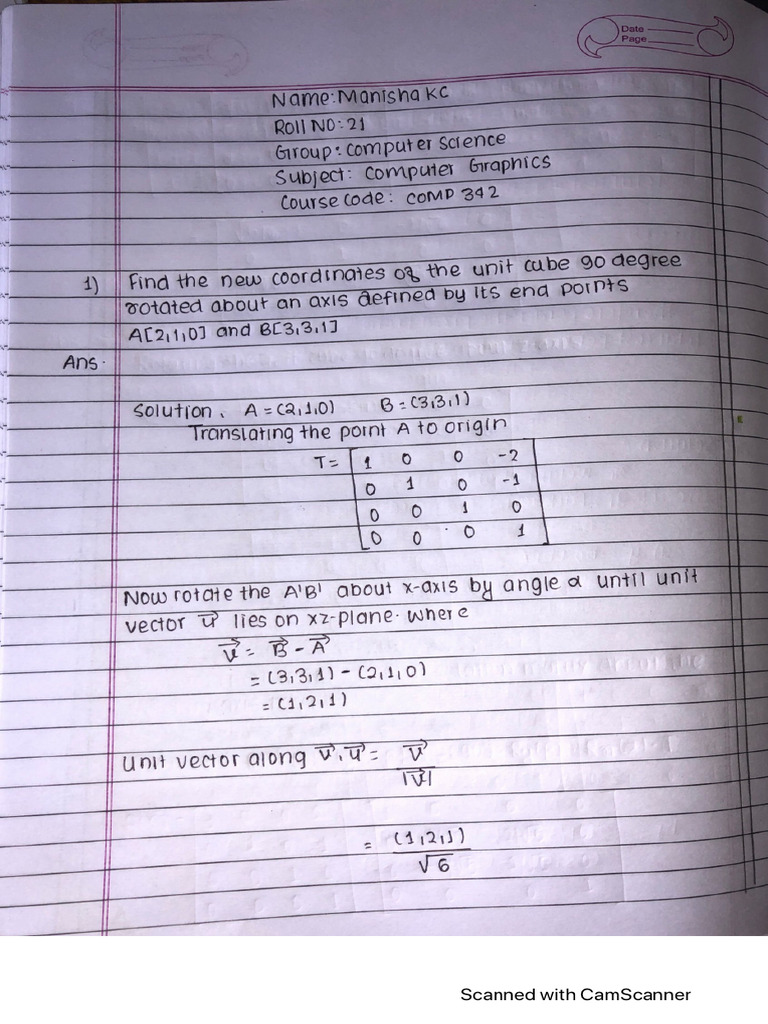 Date
Page
Name: Manisha KC
Roll NO: 21
Group: Computer Science
Subject: Computer Graphics
Course Code: COMP 342
1) Find the new coordinates of the unit cube 90 degree
rotated about an axis defined by its end points
A[2,1,0] and B[3,3,1]
Ans.
Solution, A = (2,1,0) B = (3,3,1)
Translating the point A to origin
T = [ 1 0 0 -2
0 1 0 -1
0 0 1 0
0 0 0 1 ]
Now rotate the A'B' about x-axis by angle α until unit
vector u⃗ lies on xz-plane. where
v⃗ = B⃗ - A⃗
= (3,3,1) - (2,1,0)
= (1,2,1)
Unit vector along v⃗, u⃗ = v⃗
|v⃗|
= (1,2,1)
√6
Scanned with CamScanner